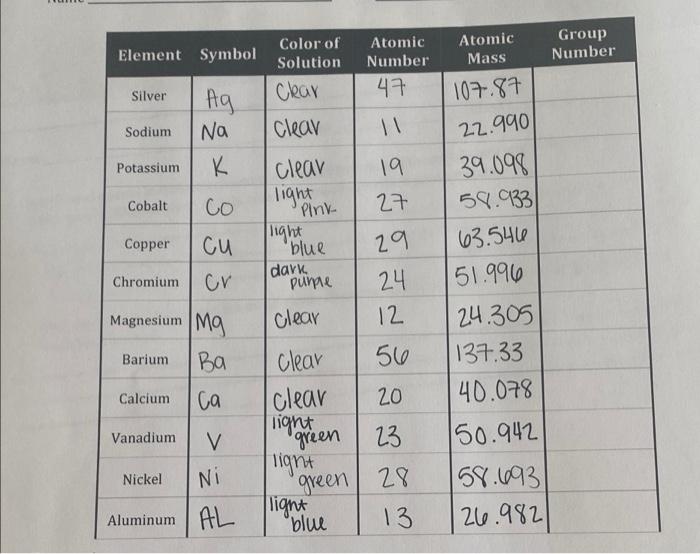 Element Symbol Color of Solution Atomic Number Atomic Mass Group Number
Silver Ag Clear 47 107.87
Sodium Na Clear 11 22.990
Potassium K Clear 19 39.098
Cobalt Co light pink 27 58.933
Copper Cu light blue 29 63.546
Chromium Cr dark purple 24 51.996
Magnesium Mg Clear 12 24.305
Barium Ba Clear 56 137.33
Calcium Ca Clear 20 40.078
Vanadium V light green 23 50.942
Nickel Ni light green 28 58.693
Aluminum AL light blue 13 26.982